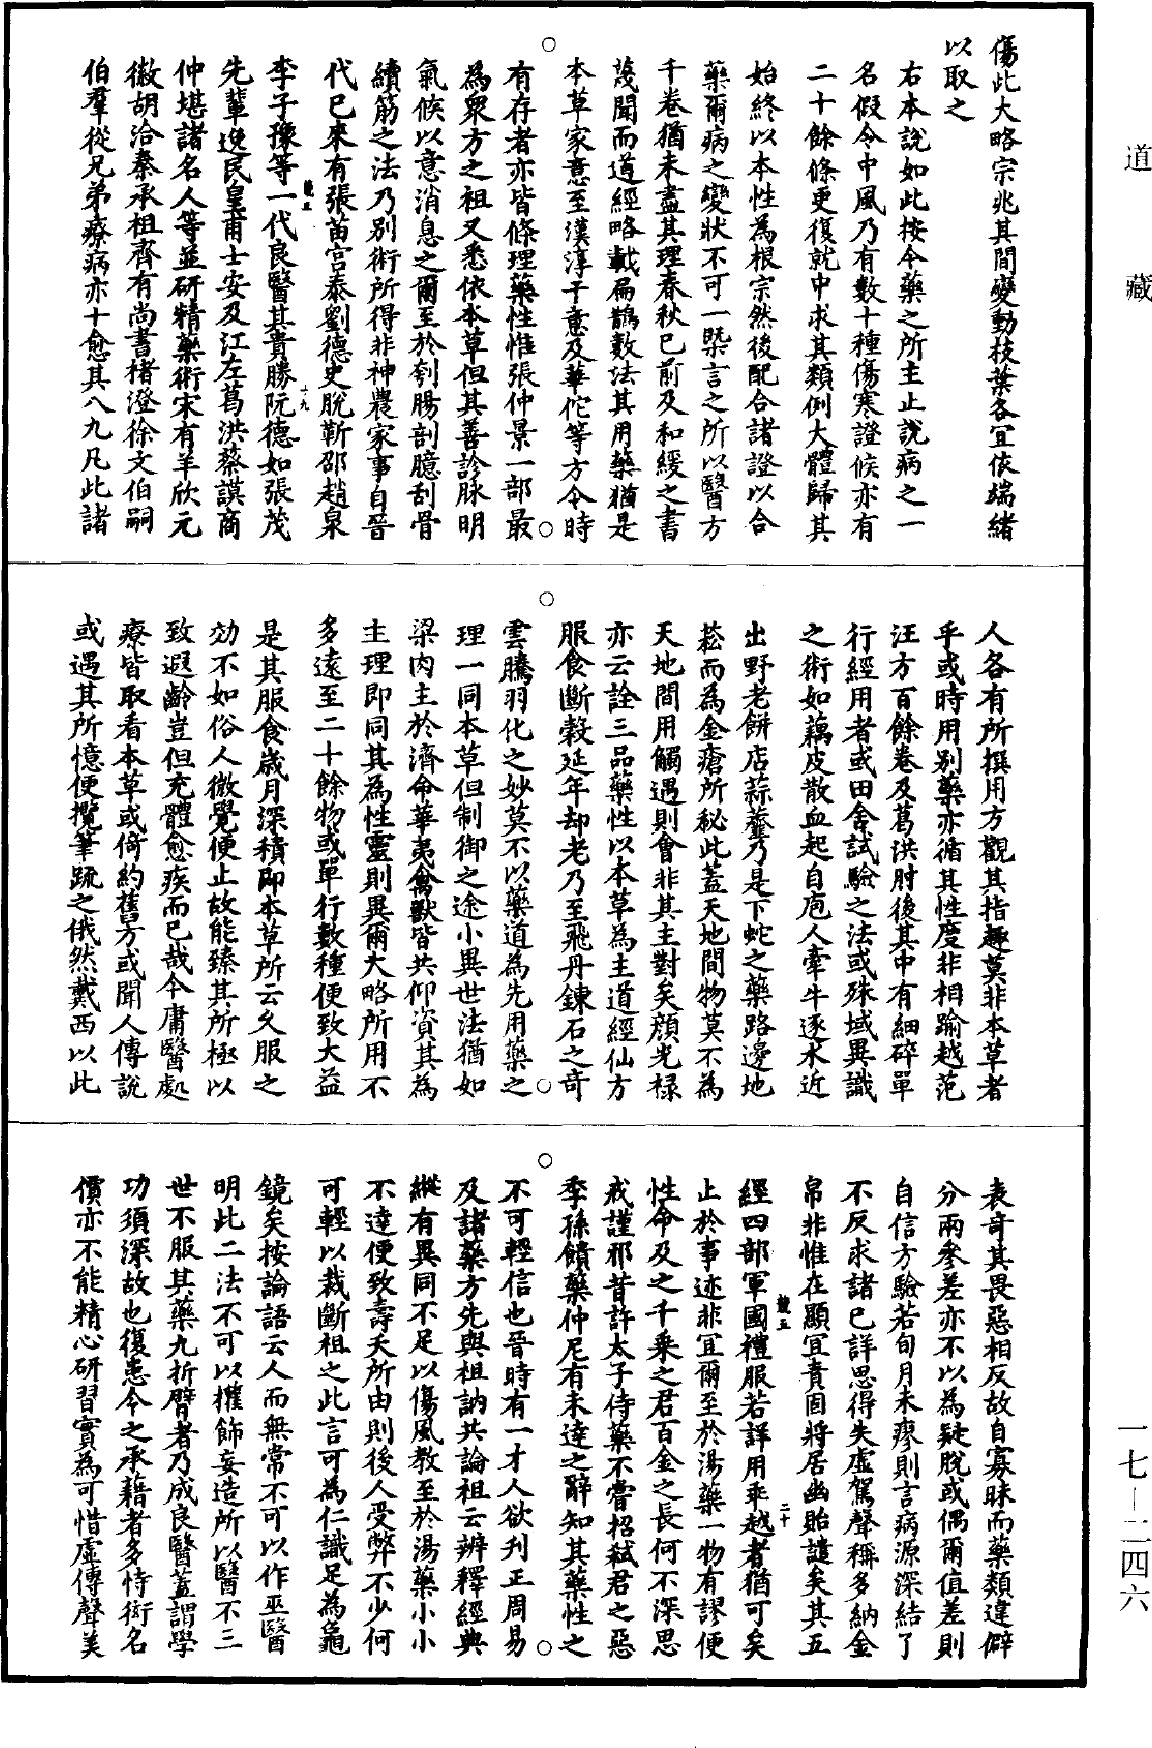 道藏
傷此大略宗兆其間變動枝葉各宜依端緒
以取之
右本說如此按今藥之所主止說病之一
名假令中風乃有數十種傷寒證候亦有
二十餘條更復就中求其類例大體歸其
始終以本性為根宗然後配合諸證以合
藥爾病之變狀不可一槩言之所以醫方
千卷猶未盡其理春秋已前及和緩之書
蔑聞而道經略載扁鵲數法其用藥猶是
本草家意至漢淳于意及華佗等方今時
有存者亦皆條理藥性惟張仲景一部最
為眾方之祖又悉依本草但其善診脉明
氣候以意消息之爾至於刳腸剖臆刮骨
續筋之法乃別術所得非神農家事自晉
代已來有張苗宮泰劉德史脫靳邵趙泉
李子豫等一代良醫其貴勝阮德如張茂
先輩逸民皇甫士安及江左葛洪蔡謨商
仲堪諸名人等並研精藥術宋有羊欣元
徽胡洽秦承祖齊有尚書褚澄徐文伯嗣
伯羣從兄弟療病亦十愈其八九凡此諸
人各有所撰用方觀其指趣莫非本草者
乎或時用別藥亦循其性度非相踰越范
汪方百餘卷及葛洪肘後其中有細碎單
行經用者或田舍試驗之法或殊域異識
之術如藕皮散血起自庖人牽牛逐水近
出野老餅店蒜虀乃是下蛇之藥路邊地
菘而為金瘡所秘此蓋天地間物莫不為
天地間用觸遇則會非其主對矣顏光祿
亦云詮三品藥性以本草為主道經仙方
服食斷穀延年却老乃至飛丹鍊石之奇
雲騰羽化之妙莫不以藥道為先用藥之
理一同本草但制御之途小異世法猶如
梁肉主於濟命華夷禽獸皆共仰資其為
主理即同其為性靈則異爾大略所用不
多遠至二十餘物或單行數種便致大益
是其服食歲月深積即本草所云久服之
効不如俗人微覺便止故能臻其所極以
致遐齡豈但充體愈疾而已哉今庸醫處
療皆取看本草或倚約舊方或聞人傳說
或遇其所憶便攬筆疏之俄然戴西以此
表奇其畏惡相反故自寡昧而藥類違僻
分兩參差亦不以為疑脫或偶爾值差則
自信方驗若旬月未瘳則言病源深結了
不反求諸已詳思得失虛駕聲稱多納金
帛非惟在顯宜責固將居幽貽譴矣其五
經四部軍國禮服若詳用乖越者猶可矣
止於事迹非宜爾至於湯藥一物有謬便
性命及之千乘之君百金之長何不深思
戒謹邪昔許太子侍藥不嘗招弒君之惡
季孫饋藥仲尼有未達之辭知其藥性之
不可輕信也晉時有一才人欲刊正周易
及諸藥方先與祖訥共論祖云辨釋經典
縱有異同不足以傷風教至於湯藥小小
不達便致壽夭所由則後人受弊不少何
可輕以裁斷祖之此言可為仁識足為龜
鏡矣按論語云人而無常不可以作巫醫
明此二法不可以權飾妄造所以醫不三
世不服其藥九折臂者乃成良醫蓋謂學
功須深故也復患今之承藉者多恃衒名
價亦不能精心研習實為可惜虛傳聲美
一七—二四六